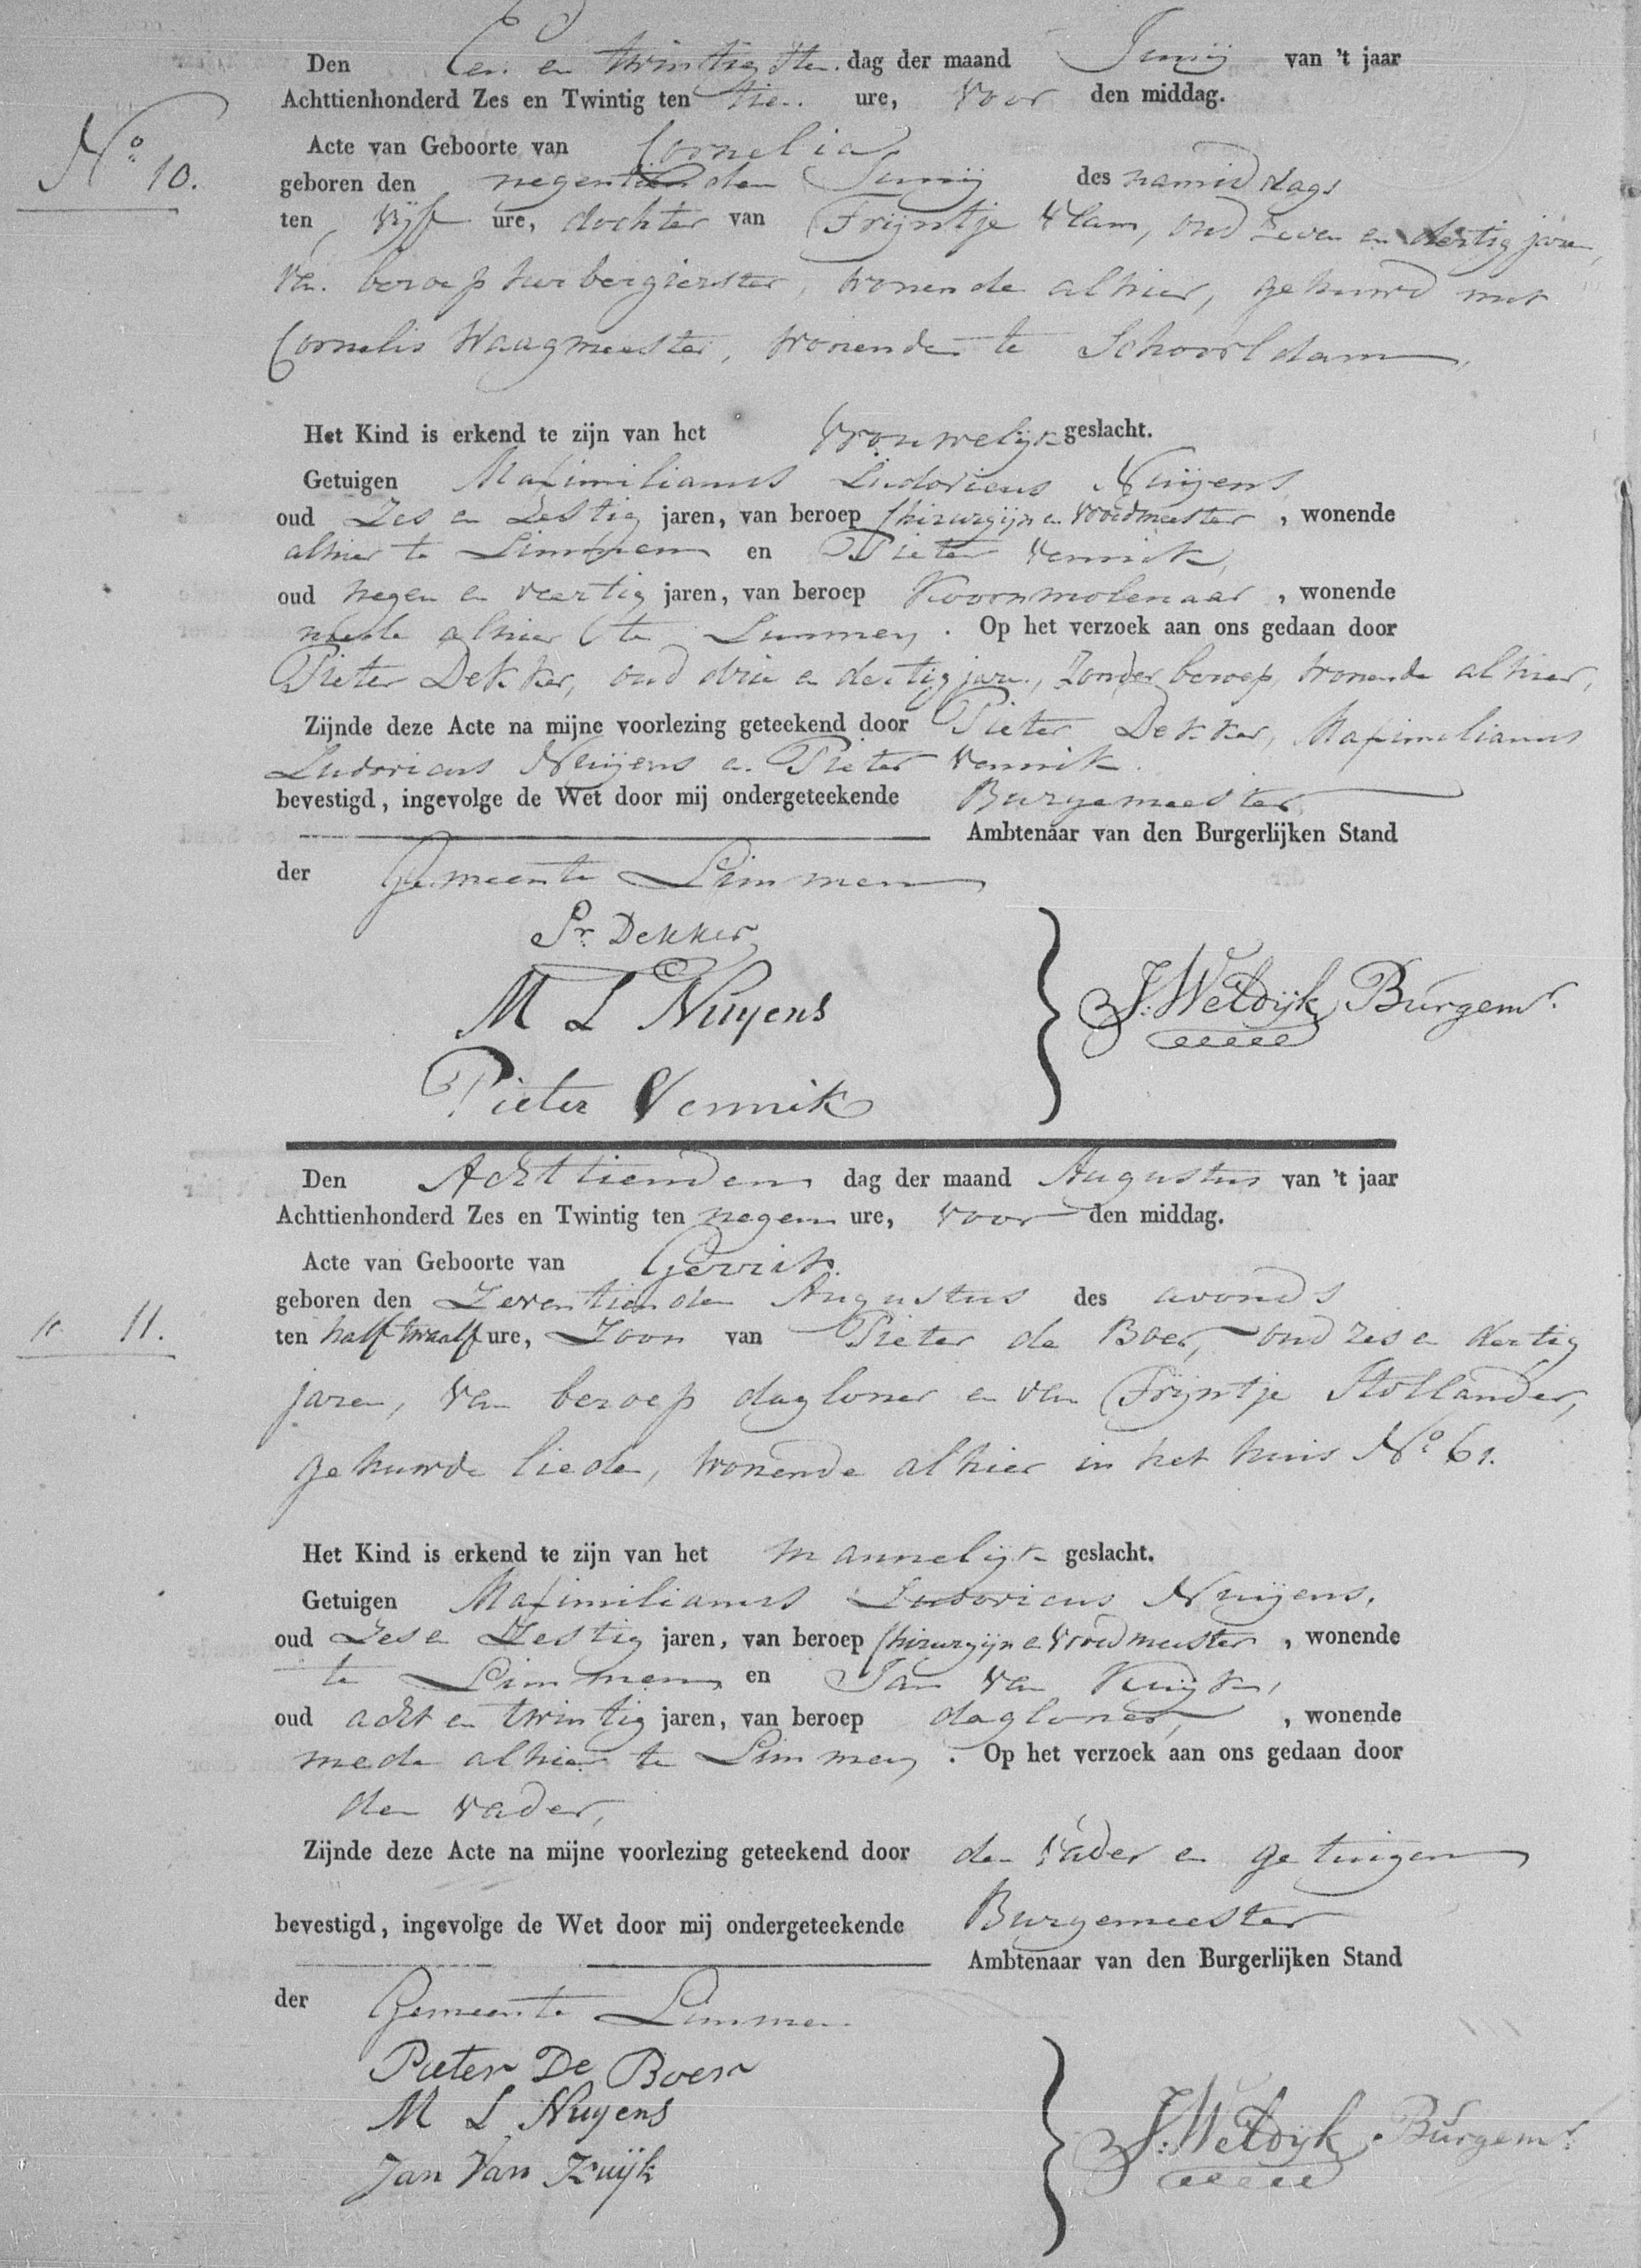 Den Een en twintigsten dag der maand Junij van 't jaar
Achttienhonderd Zes en Twintig ten tien ure, voor den middag.
N.o 10.
Acte van Geboorte van Cornelia
geboren den negentienden Junij des namiddags
ten vijf ure, dochter van Trijntje Vlam, oud zeven en dertig jaren,
van beroep herbergierster, wonende alhier, gehuwd met
Cornelis Waagmeester, wonende te Schoorldam,
Het Kind is erkend te zijn van het vrouwelijk geslacht.
Getuigen Maximilianus Ludovicus Nuijens
oud Zes en Zestig jaren, van beroep Chirurgijn en vroedmeester, wonende
alhier te Limmen en Pieter Vennik,
oud negen en veertig jaren, van beroep Koornmolenaar, wonende
mede alhier te Limmen. Op het verzoek aan ons gedaan door
Pieter Dekker, oud drie en dertig jaren, zonder beroep, wonende alhier,
Zijnde deze Acte na mijne voorlezing geteekend door Pieter Dekker, Maximilianus
Ludovicus Nuijens en Pieter Vennik.
bevestigd, ingevolge de Wet door mij ondergeteekende Burgemeester
Ambtenaar van den Burgerlijken Stand
der Gemeente Limmen
Pr. Dekker
M L Nuyens
J: Weldijk Burgemr.
Pieter Vennik
Den Achttienden dag der maand Augustus van 't jaar
Achttienhonderd Zes en Twintig ten negen ure, voor den middag.
Acte van Geboorte van Gerrit.
geboren den Zeventienden Augustus des avonds
" 11.
ten half twaalf ure, Zoon van Pieter de Boer, oud zes en dertig
jaren, van beroep dagloner en van Trijntje Hollander,
gehuwde lieden, wonende alhier in het huis No. 61.
Het Kind is erkend te zijn van het mannelijk geslacht.
Getuigen Maximilianus Ludovicus Nuijens,
oud Zes en Zestig jaren, van beroep Chirurgijn en vroedmeester, wonende
te Limmen en Jan van Kuijk,
oud acht en twintig jaren, van beroep dagloner, , wonende
mede alhier te Limmen. Op het verzoek aan ons gedaan door
den vader,
Zijnde deze Acte na mijne voorlezing geteekend door den vader en getuigen
bevestigd, ingevolge de Wet door mij ondergeteekende Burgemeester
Ambtenaar van den Burgerlijken Stand
der Gemeente Limmen
Pieter De Boer
M L Nuyens
J: Weldijk Burgemr.
Jan Van Kuijk